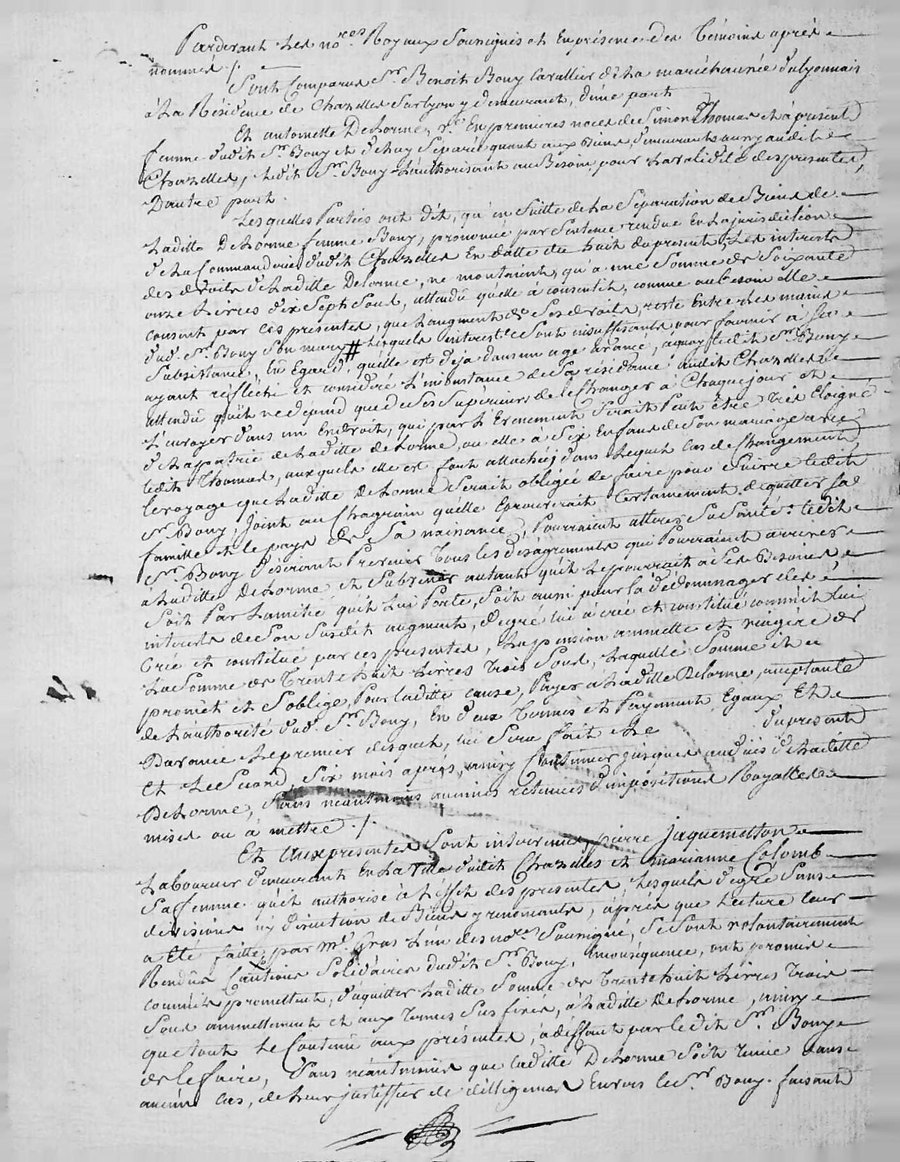 Pardevant Les no.res Royaux Soussignés et En présence des Témoins après
nommés /.
Sont Comparus S.r Benoit Bouy Cavallier de La maréchaussée du lyonnais
à La Résidence de Chazelles Sur lyon y demeurant, d'une part
Et antoinette Delorme, v.e En premieres noces de Simon Thomas et à présent
femme dudit S.r Bouy et de luy Séparée quant aux Biens, demeurants aussy audit
Chazelles, Ledit S.r Bouy L'authorisant au Besoin, pour La validité des présentes,
D'autre part.
Lesquelles Parties ont dit, qu'en Suitte de La Séparation de Biens de
Laditte Delorme femme Bouy, prononcée par Sentence rendue En La jurisdiction
de La Commanderie dudit Chazelles En datte du huit du present, Les interets
des droits de Laditte Delorme, ne montaient, qu'a une Somme de Soixante
onze Livres dix Sept Sous, attendu qu'elle à consentit, comme au besoin elle
consent par ces présentes, que L'augment de Ses droits, reste Entre les mains
dud. S.r Bouy Son mary # Lesquels interets Sont insuffisants pour fournir à Sa
Subsistance, En Egard, qu'elle est déja dans un age avancé, aquoy Ledit S.r Bouy
ayant réfléchi et considéré L'inconstance de Sa residance audit Chazelles
attendu qu'il ne dépend que de Ses Superieurs de le Changer à Chaque jour et
L'envoyer dans un Endroit, qui par L'Evenement Serait Peut être très Eloigné
de La patrie de Laditte Delorme, ou elle a Six Enfans de Son mariage avec
Ledit Thomas, auxquels elle est fort attachée; dans Lequel cas de Changement,
le voyage que Laditte Delorme Serait obligée de faire pour Suivre Ledit
S.r Bouy, Joint au Chagrain quelle Eprouverait Certainement de quitter Sa
famille et le pays de Sa naissance, Pourraient alterer Sa Santé: Ledit
S.r Bouy désirant Prévenir Tous les désagréments qui Pourraient arriver
à Laditte Delorme, et Subvenir autant qu'il Le pourrait à Ses Besoins
Soit Par L'amitié qu'il Lui Porte, Soit aussi pour la dédommager des
interets de Son Susdit augment, de gré lui à créé et constitué comme il lui
Crée et constitue par ces présentes, La pension annuelle et viagère de
La Somme de Trente huit Livres Trois Sous, Laquelle Somme il
promet et S'oblige, Pour laditte cause, Payer à Laditte Delorme, acceptante
de L'authorité dud. S.r Bouy, En deux Termes et Payement Egaux Et
D'avance Le premier desquels, lui Sera fait Le du présent
Et Le Second, Six mois après, ainsy Continuer jusques au décès de Laditte
Delorme, Sans néantmoins aucunes retenues d'impositions Royalles
mises ou à mettre /.
Et aux présentes Sont intervenus pierre Jaquemetton
Laboureur demeurant En La Ville dudit Chazelles et marianne Colomb
Sa femme qu'il authorise à L'Effet des présentes, Lesquels de gré Sans
divisions ny discution de Biens y renonçants, après que Lecture leur
a été faitte, par m.e Gras L'un des no.res Soussigné, Se Sont volontairement
Rendus Cautions Solidaires dudit S.r Bouy, inconséquence, ont promis
comme ils promettent, d'aquitter Laditte Somme de Trente huit Livres Trois
Sous annuellement et aux Termes Sus fixés, à Laditte Delorme, ainsy
que tout Le Contenu aux présentes, à deffaut par ledit S.r Bouy
de le faire, Sans néantmoins que laditte Delorme Soit Tenue dans
aucun Cas, de Leur justiffier de dilligences Envers le S.r Bouy. faisant